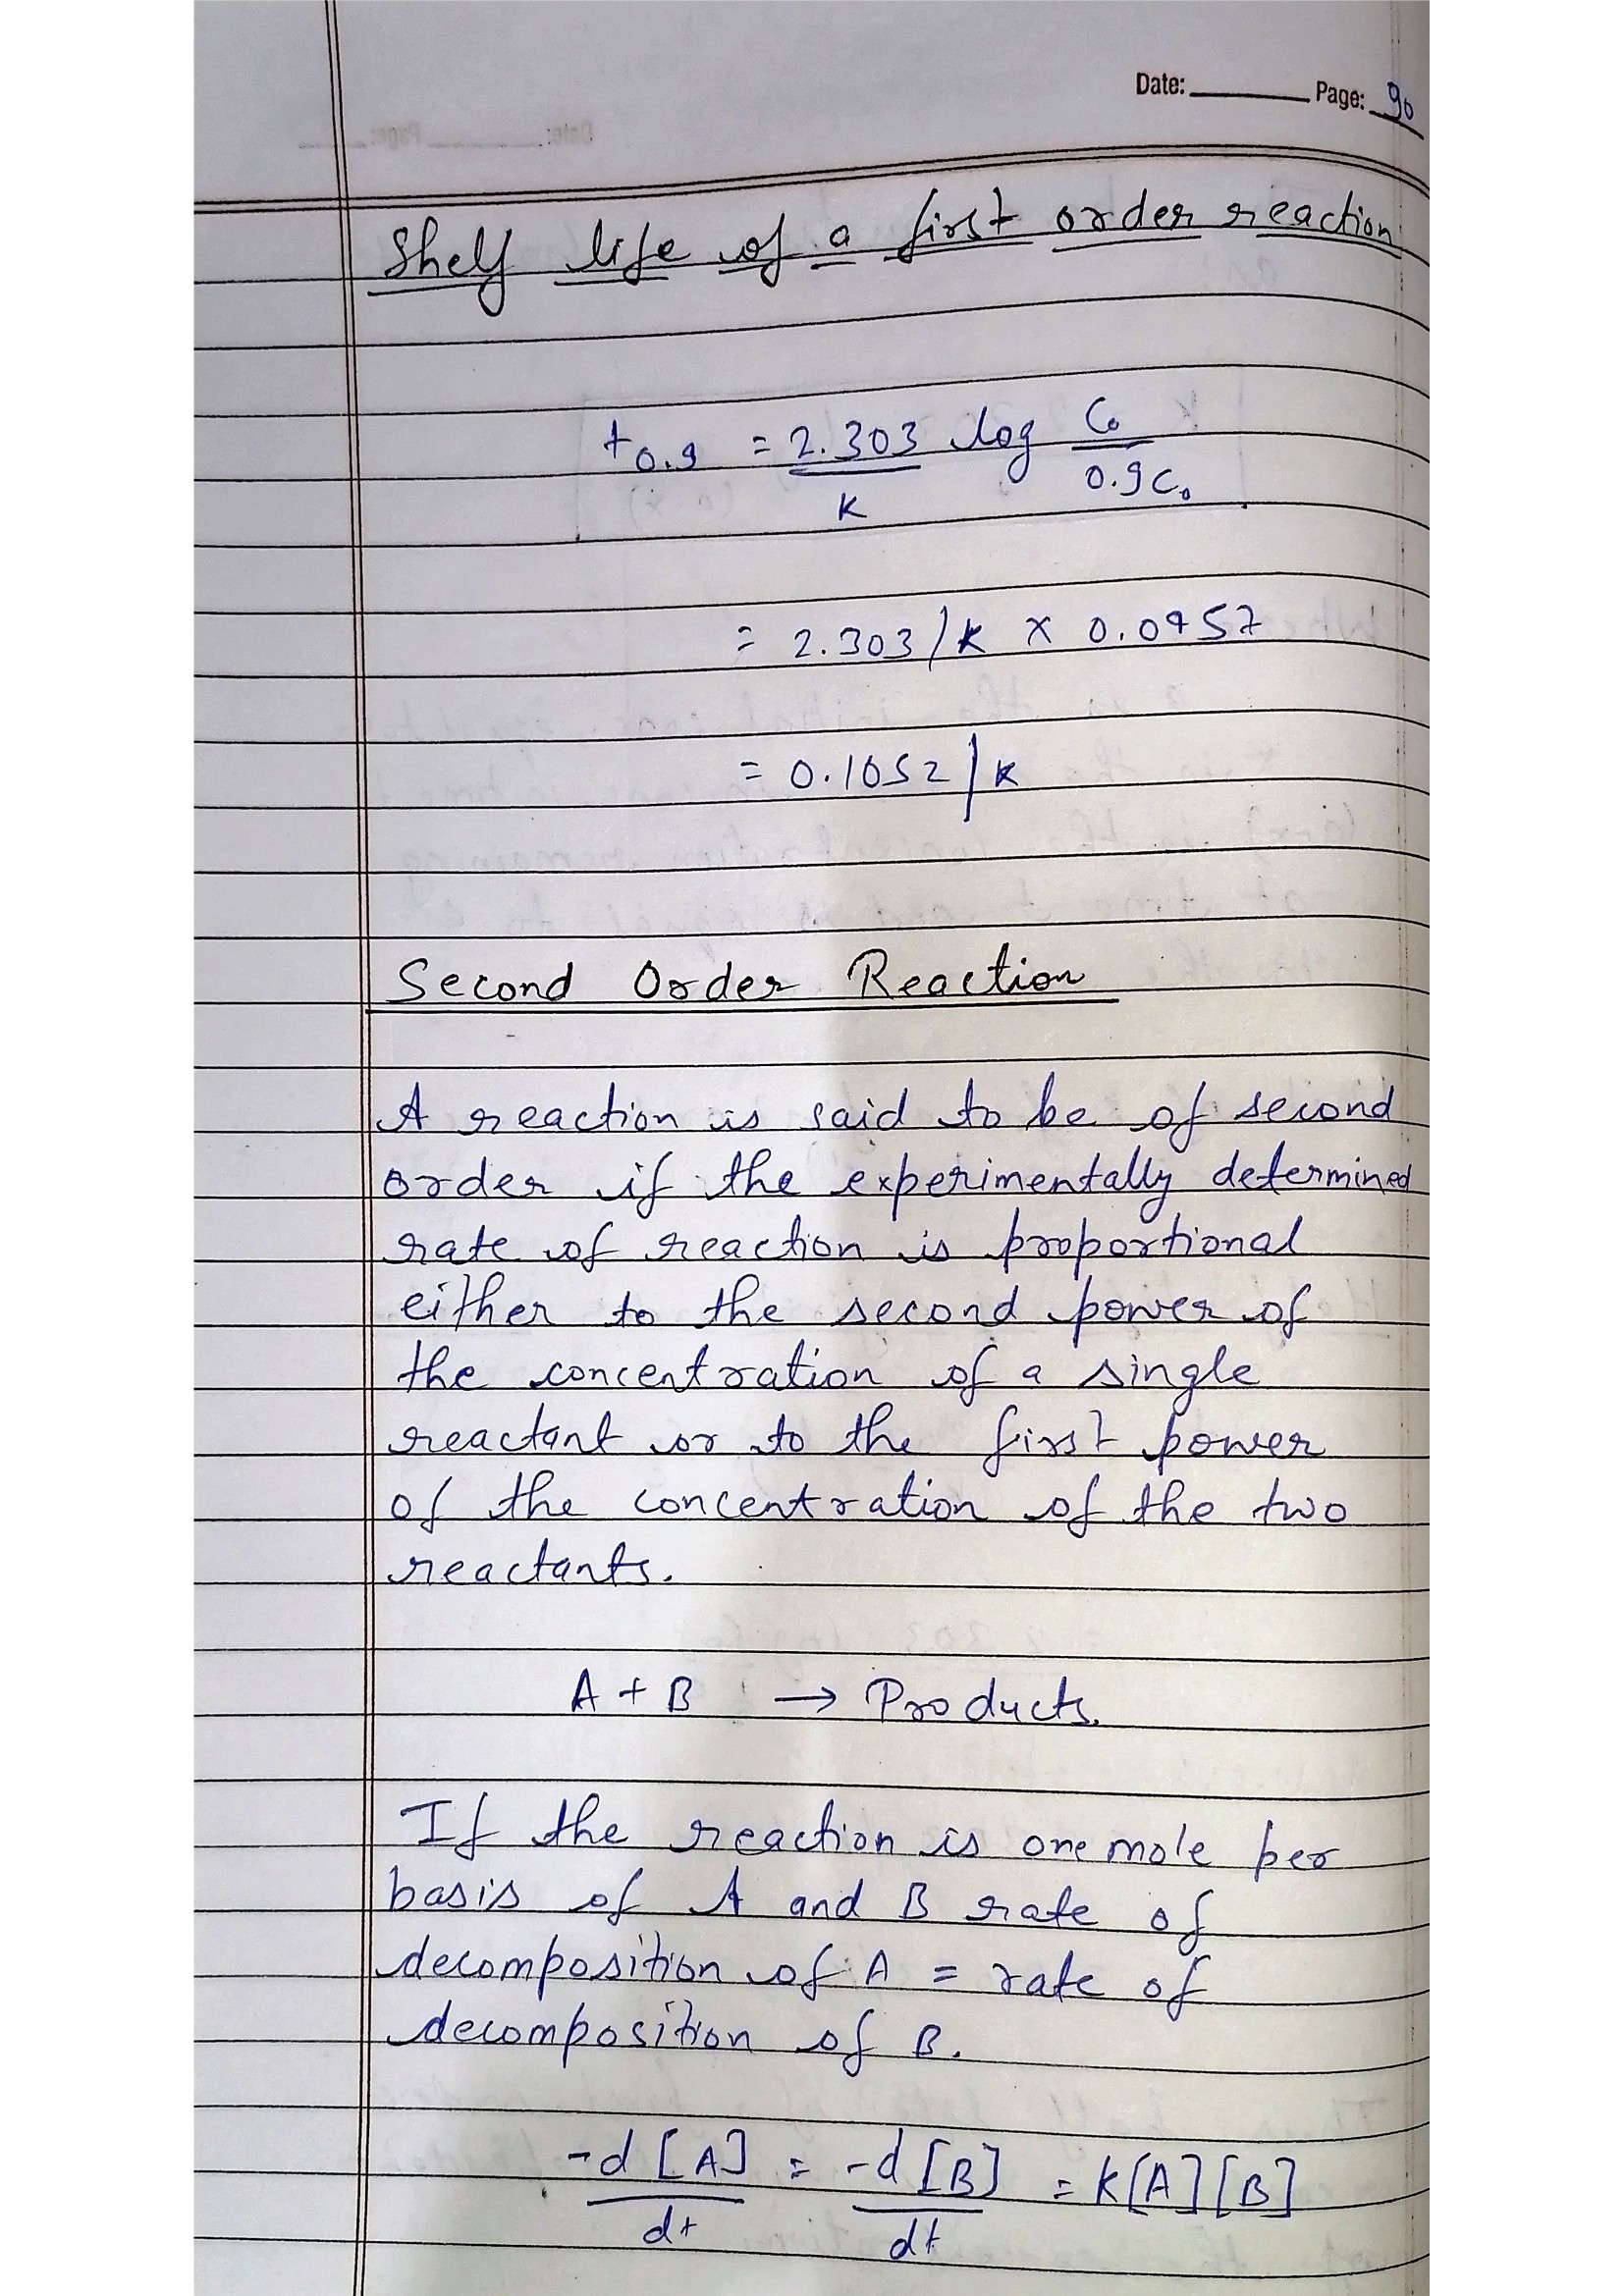 Date: Page: 90
Shelf life of a first order reaction
t0.9 = 2.303/K log C0/0.9C0
= 2.303/K × 0.0457
= 0.1052/K
Second Order Reaction
A reaction is said to be of second
order if the experimentally determined
rate of reaction is proportional
either to the second power of
the concentration of a single
reactant or to the first power
of the concentration of the two
reactants.
A + B → Products.
If the reaction is one mole per
basis of A and B rate of
decomposition of A = rate of
decomposition of B.
-d[A]/dt = -d[B]/dt = K[A][B]